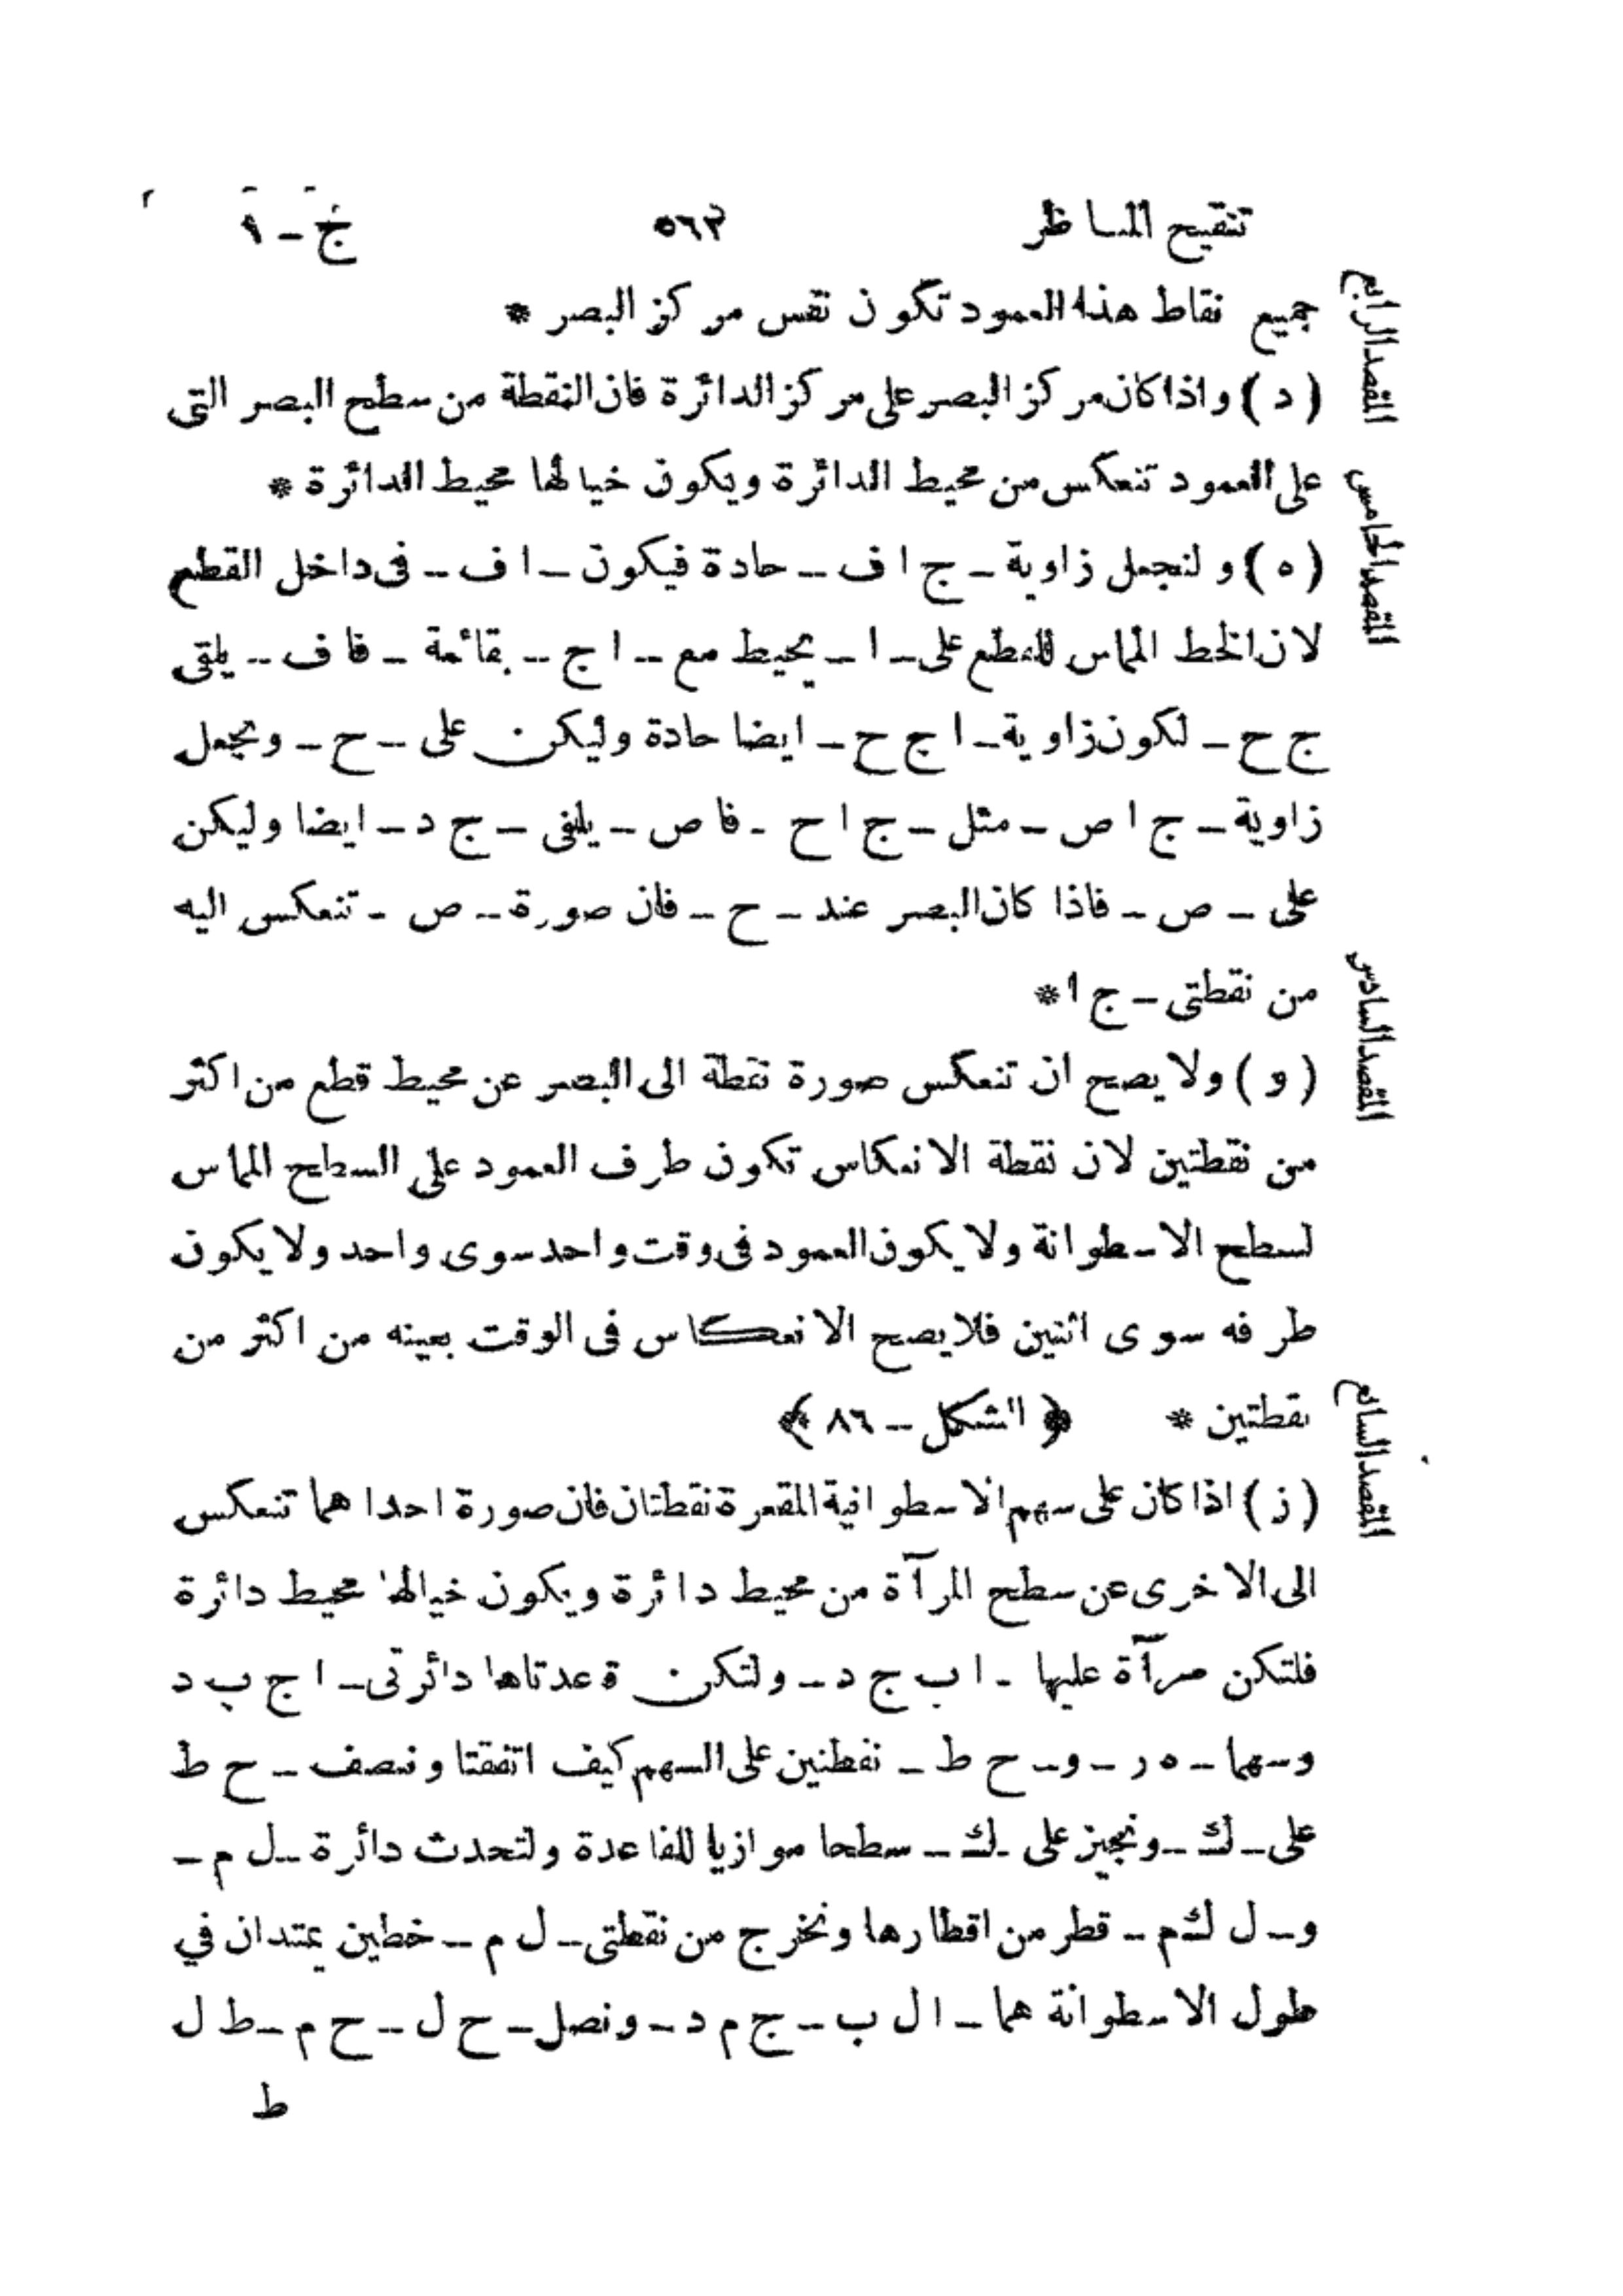 تنقيح المناظر ٥٦٢ ج - ١
المقصد الرابع
جميع نقاط هذا العمود تكون نفس مركز البصر *
( د ) واذا كان مركز البصر على مركز الدائرة فان النقطة من سطح البصر التى
على العمود تنعكس من محيط الدائرة ويكون خيالها محيط الدائرة *
المقصد الخامس
( ه ) ولنجعل زاوية – ج ا ف – حادة فيكون – ا ف – فى داخل القطع
لان الخط المماس للقطع على – ا – يحيط مع – ا ج – بقائمة – فا ف – يلقى
ج ح – لكون زاوية – ا ج ح – ايضا حادة وليكن على – ح – ونجعل
زاوية – ج ا ص – مثل – ج ا ح – فا ص – يلقى – ج د – ايضا وليكن
على – ص – فاذا كان البصر عند – ح – فان صورة – ص – تنعكس اليه
من نقطتى – ج ا *
المقصد السادس
( و ) ولا يصح ان تنعكس صورة نقطة الى البصر عن محيط قطع من اكثر
من نقطتين لان نقطة الانعكاس تكون طرف العمود على السطح المماس
لسطح الاسطوانة ولا يكون العمود فى وقت واحد سوى واحد ولا يكون
طرفه سوى اثنين فلا يصح الانعكاس فى الوقت بعينه من اكثر من
نقطتين * ﴿ الشكل – ٨٦ ﴾
المقصد السابع
( ز ) اذا كان على سهم الاسطوانية المقعرة نقطتان فان صورة احداهما تنعكس
الى الاخرى عن سطح المرآة من محيط دائرة ويكون خيالها محيط دائرة
فلتكن مرآة عليها – ا ب ج د – ولتكن قاعدتاها دائرتى – ا ج ب د
وسهما – ه ر – و – ح ط – نقطتين على السهم كيف اتفقتا وننصف – ح ط
على – ك – ونجيز على – ك – سطحا موازيا للقاعدة ولتحدث دائرة – ل م –
و – ل ك م – قطر من اقطارها ونخرج من نقطتى – ل م – خطين يمتدان في
طول الاسطوانة هما – ا ل ب – ج م د – ونصل – ح ل – ح م – ط ل
ط